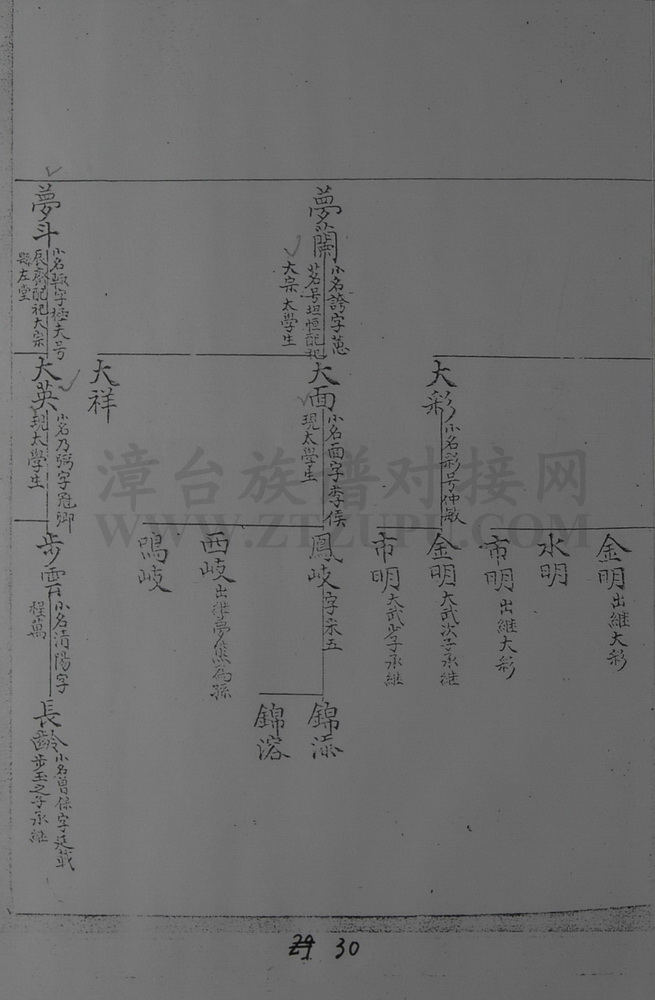 夢蘭
小名謗字蕙
茗号坦恒配祀
大宗太學生
夢斗
小名字極夫号
辰齋配祀大宗
左堂
大彩
小名彩号仲敏
大面
小名面字李侯
現太學生
大祥
大英
小名乃弼字冠卿
現太學生
金明
出繼大彩
水明
市明
出繼大彩
金明
大武次子承継
市明
大武步子承継
鳳岐
字采五
西岐
出継夢為孫
鳴岐
步雲
小名清陽字
程萬
錦添
錦溶
長齡
小名曾保字延戠
步玉之子承継
漳台族谱对接网
WWW.ZTZUPU.COM
29 30